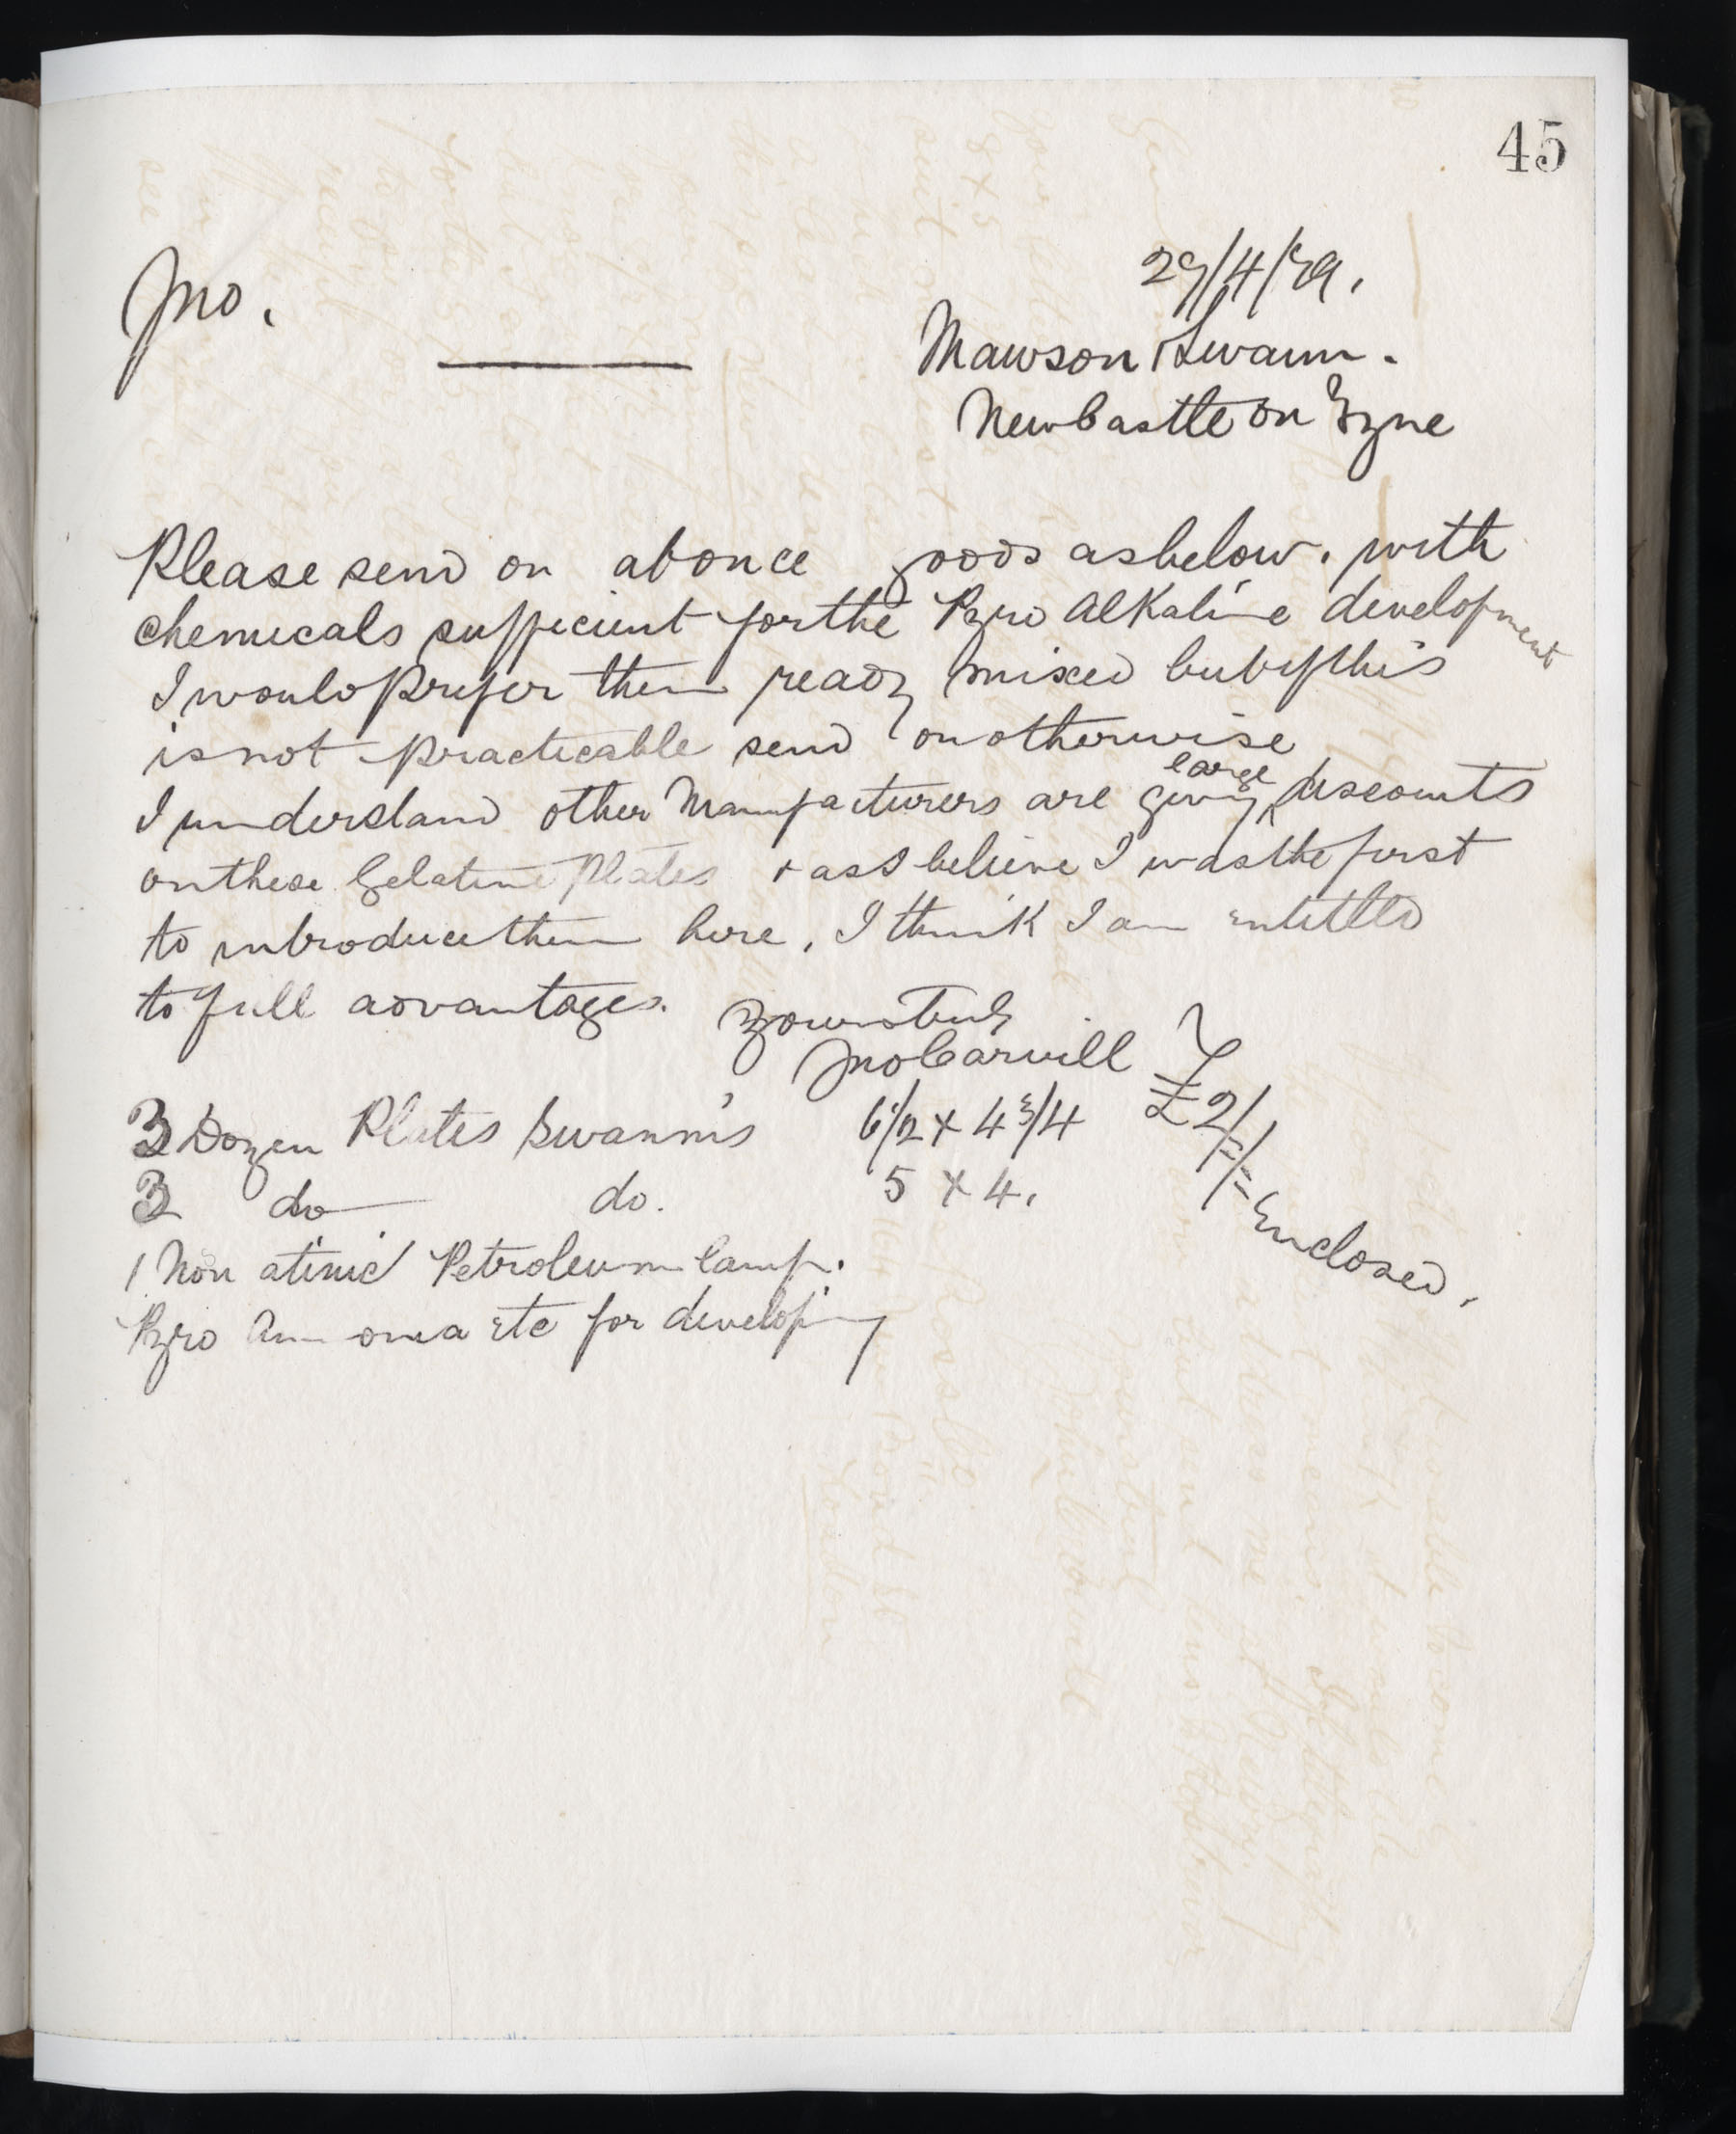 45
29/4/79.
Jno.
Mawson & Swann.
NewCastle on Tyne
Please send on at once goods as below. with
chemicals sufficient for the Pyro Alkaline development
I would prefer them ready mixed but if this
is not practicable send on otherwise
I understand other Manufacturers are giving large discounts
on these Gelatine Plates & as I believe I was the first
to introduce them here, I think I am entitled
to full advantages.
Yours truly
Jno Carvill
3 Dozen Plates Swann's 6 1/2 x 4 3/4
3 do do. 5 x 4.
£2/-/- Enclosed.
1 Non atinic Petroleum lamp.
Pyro Ammonia Etc for developing